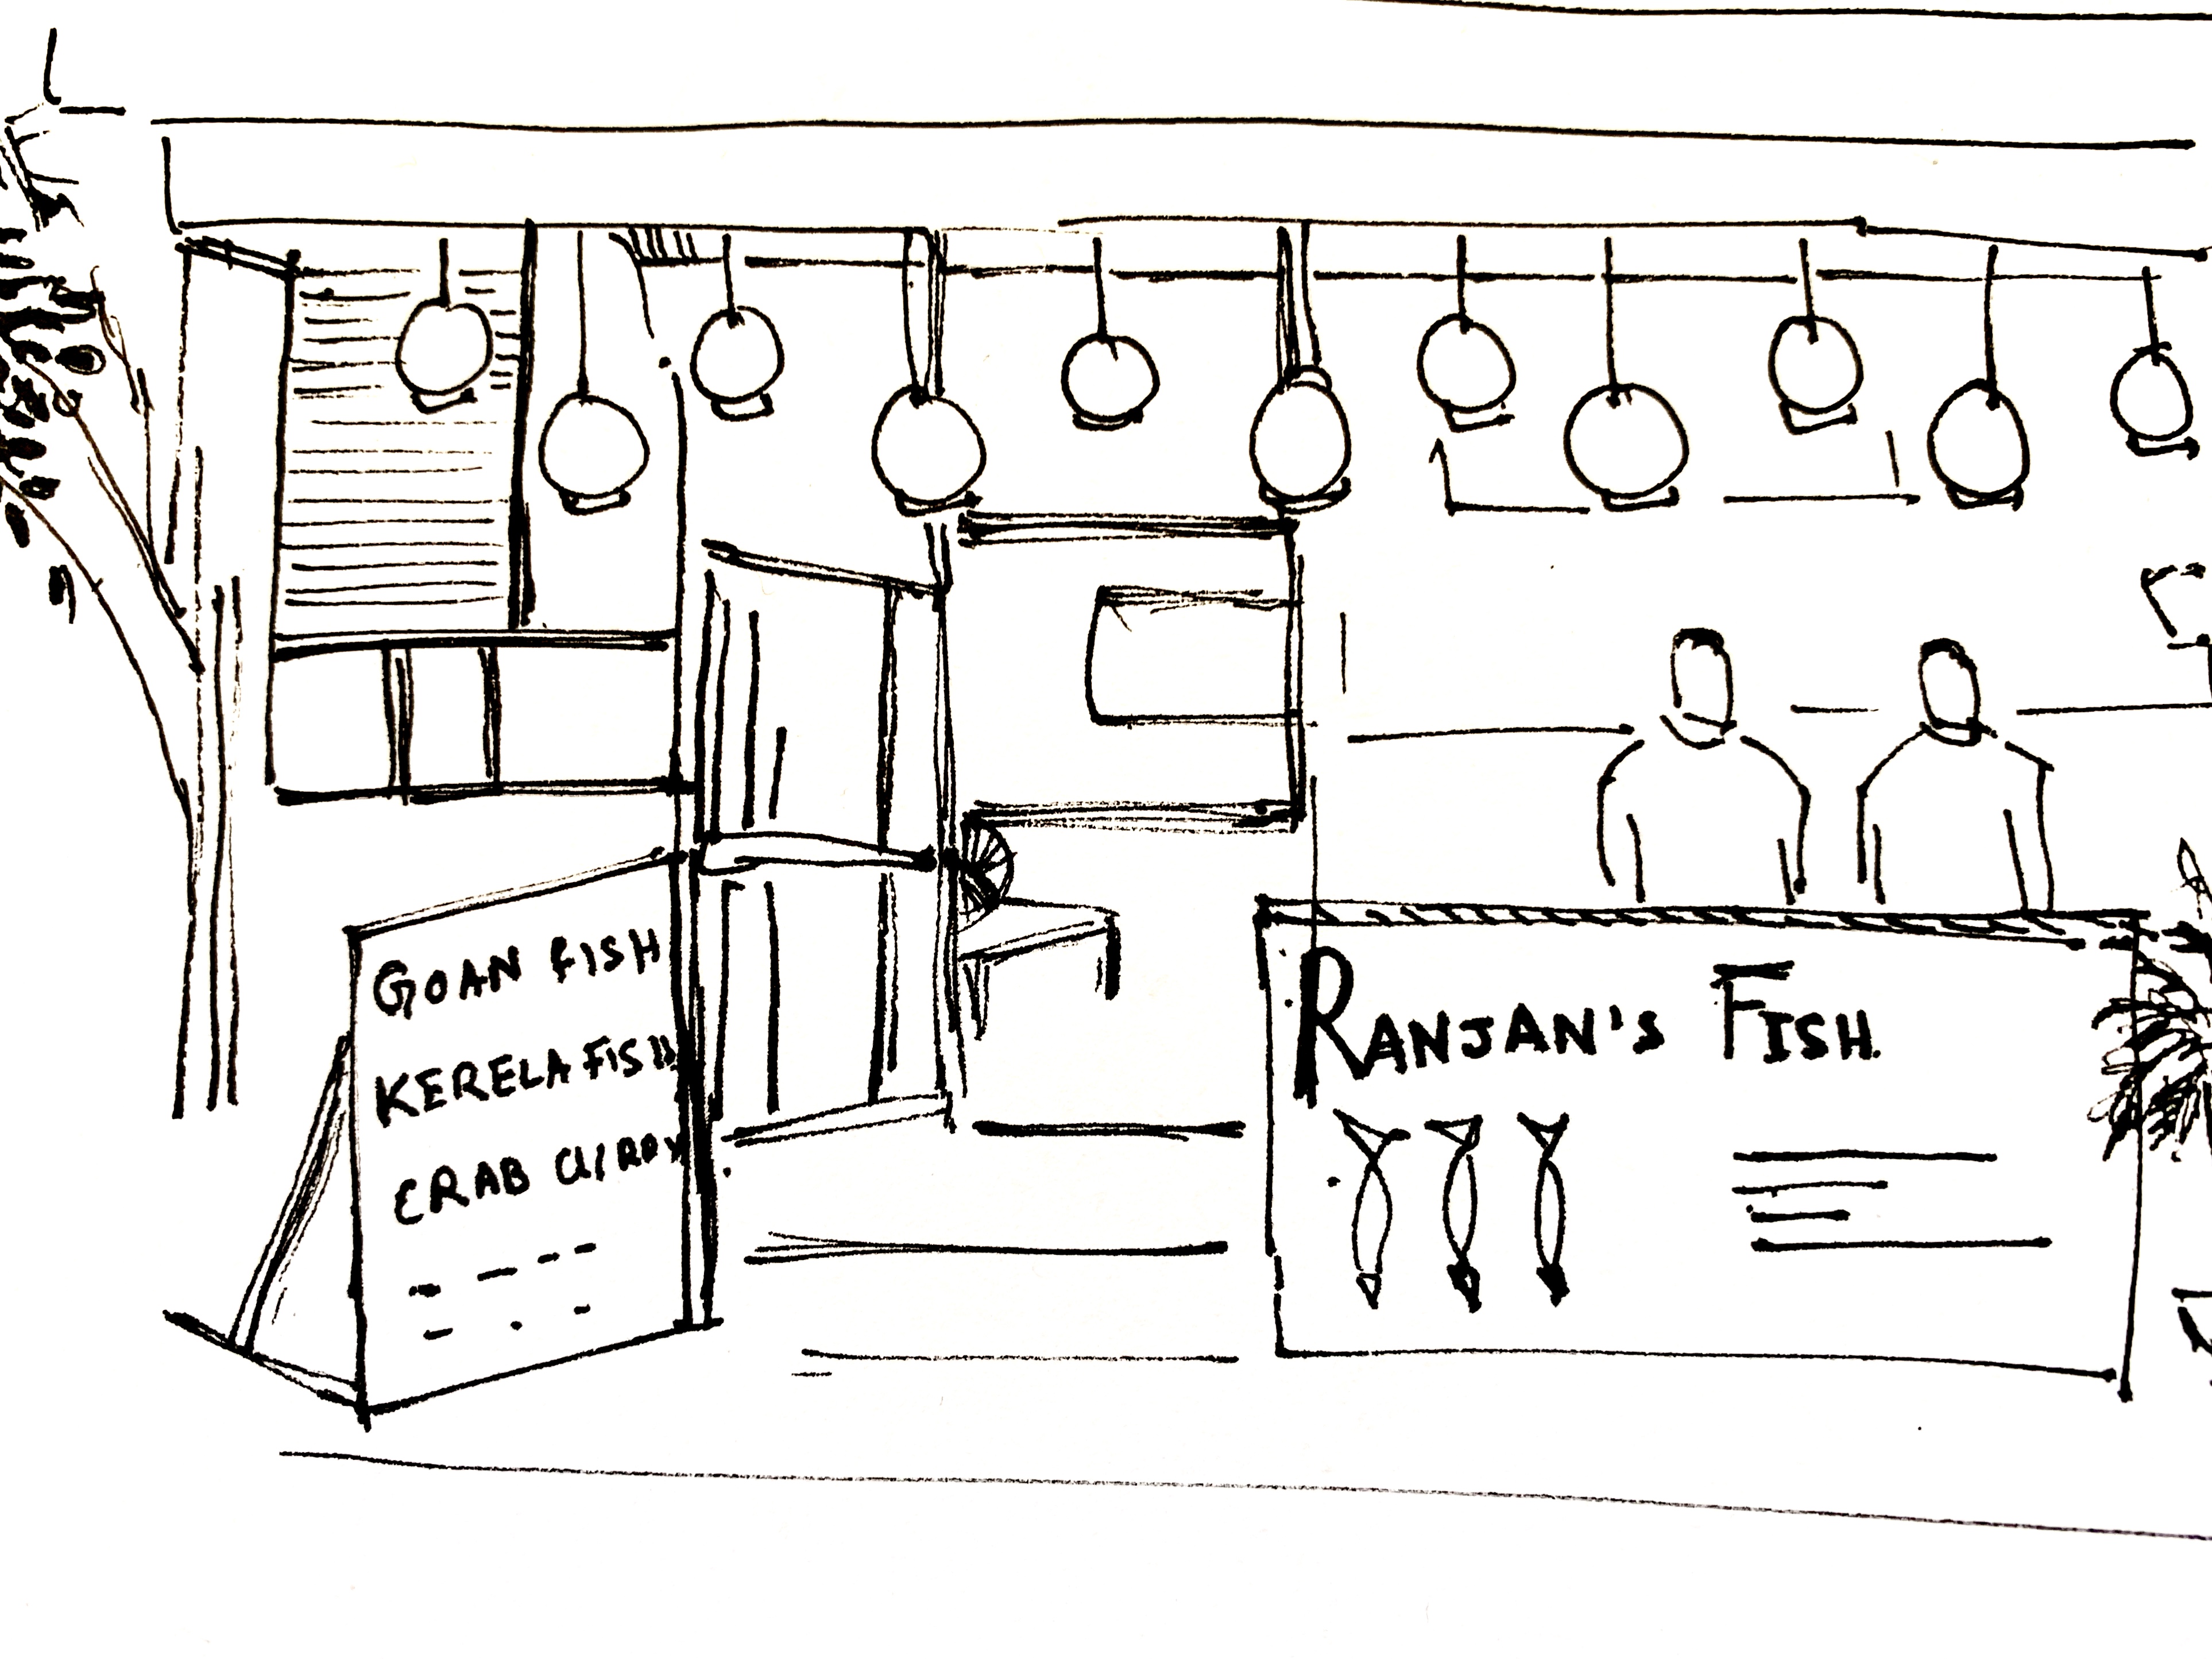 GOAN FISH
KERELA FISH
CRAB CURRY
RANJAN'S FISH